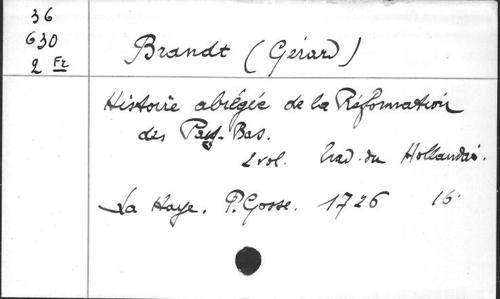 36
630
2 Fr
Brandt (Gérard)
Histoire abrégée de la Réformation
des Pays-Bas.
2 vol. trad. du Hollandais.
La Haye. P. Gosse. 1726 16.